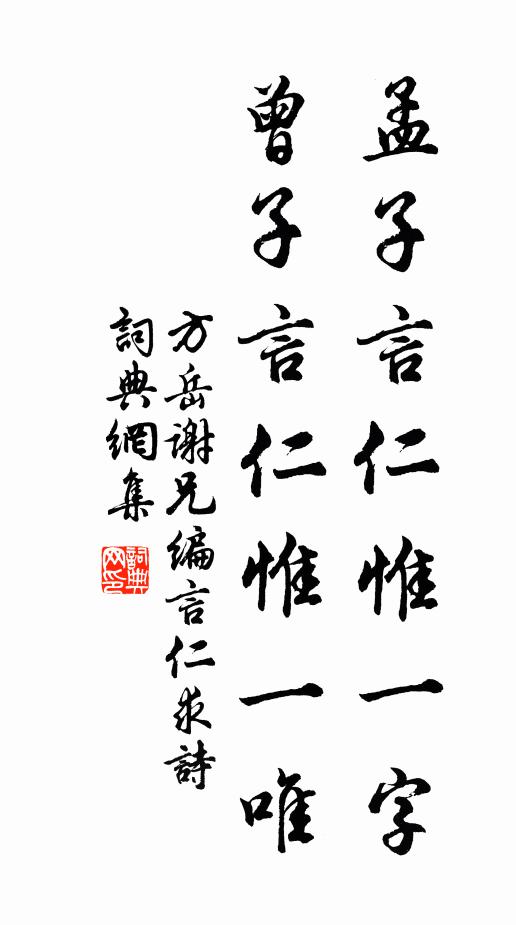 孟子言仁惟一字
曾子言仁惟一唯
方岳謝兄編言仁求詩
詞典網集
詞典
网印